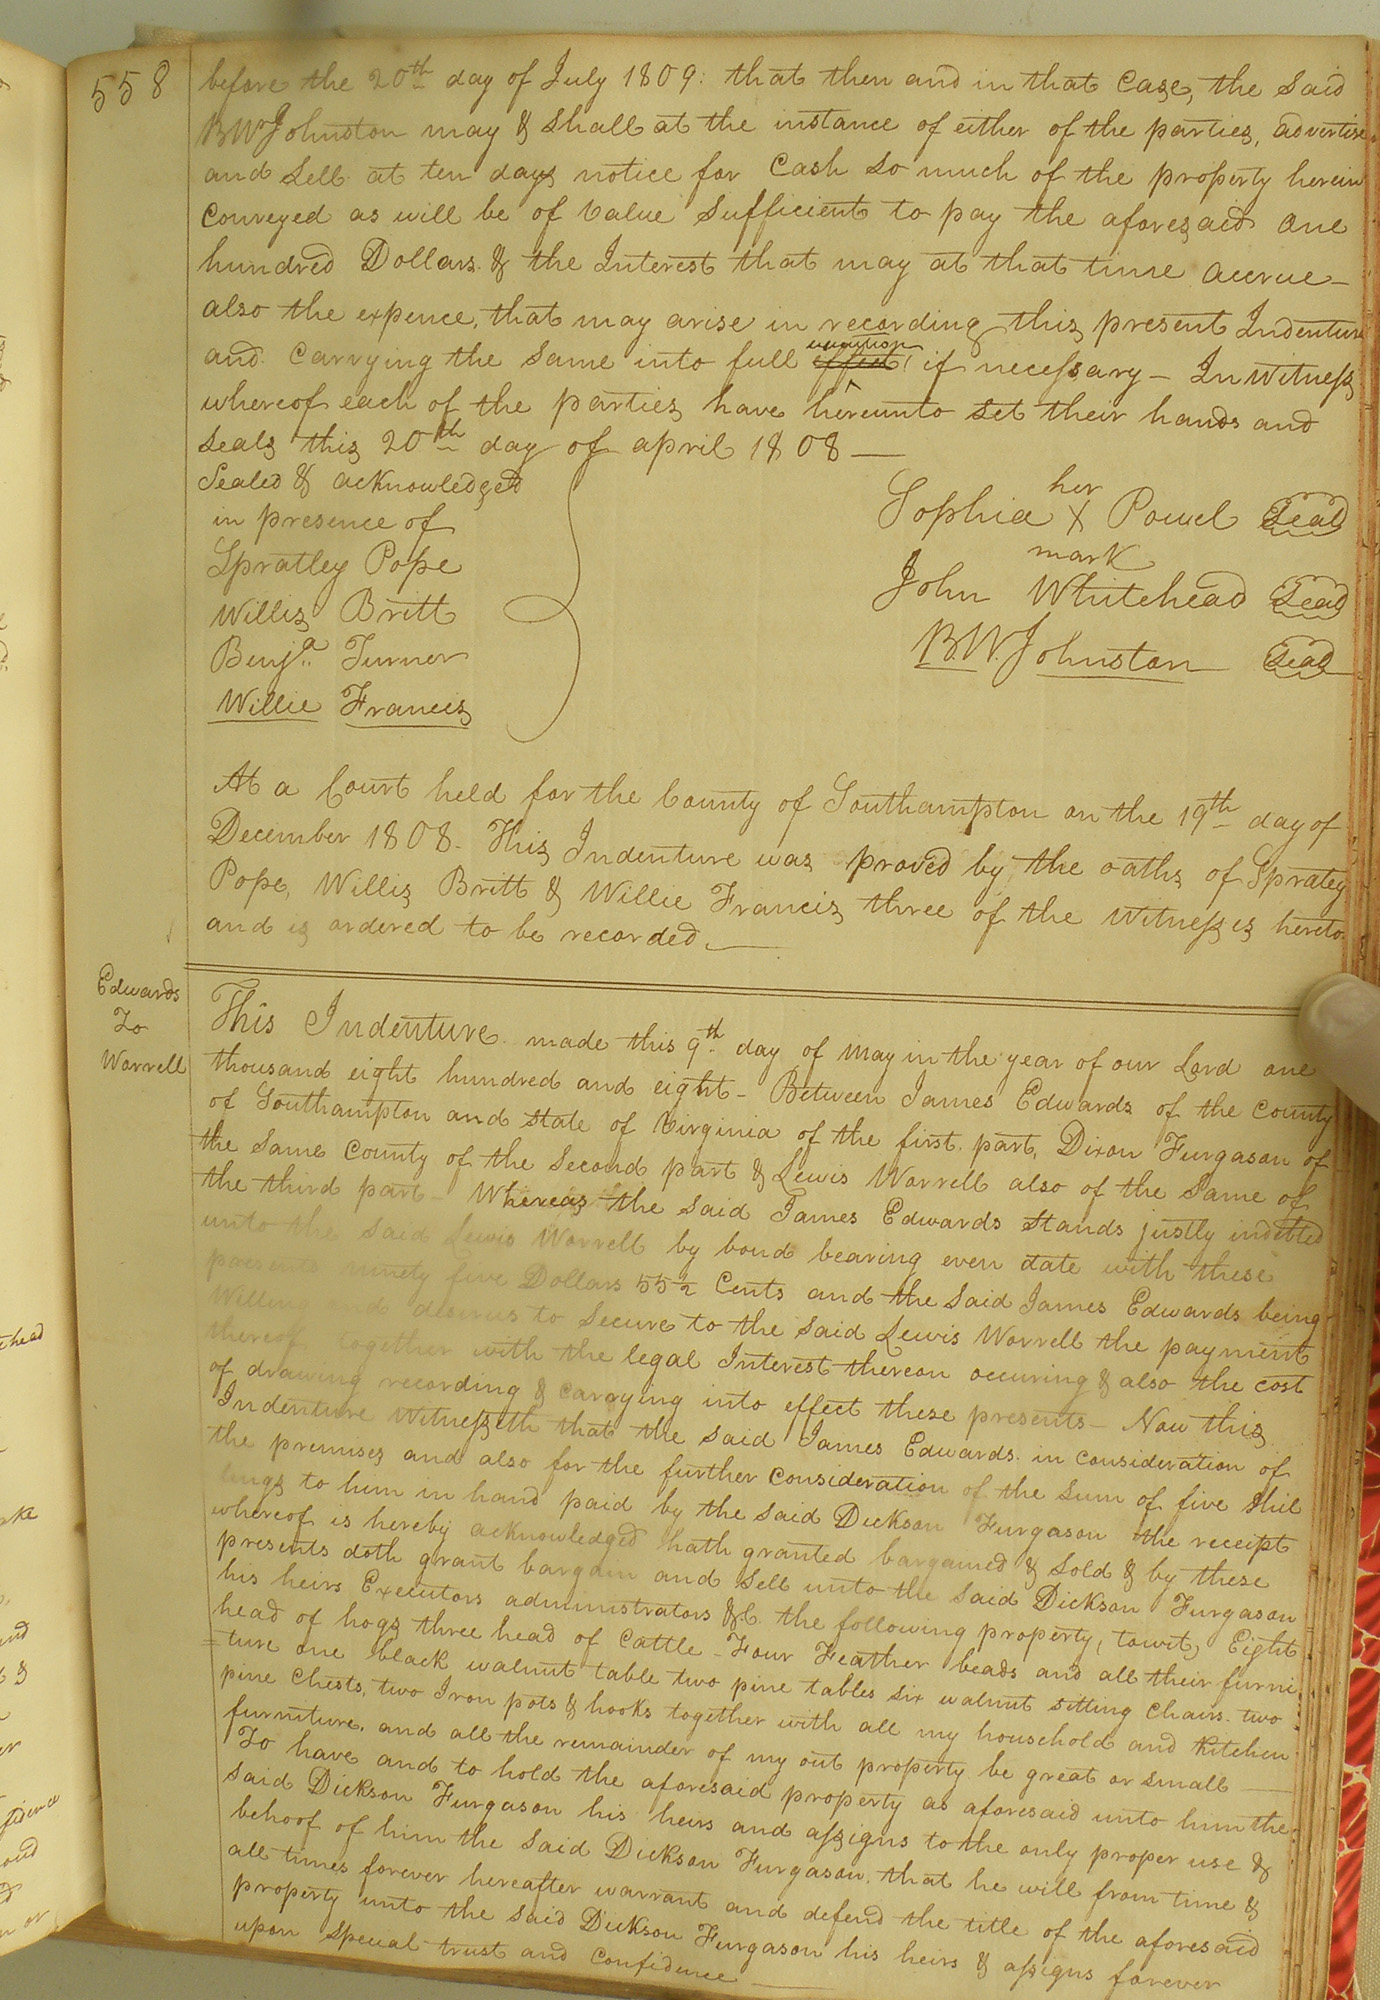 558
before the 20th day of July 1809: that then and in that Case, the said
B W Johnston may & shall at the instance of either of the parties, advertise
and sell at ten days notice for Cash so much of the property herein
Conveyed as will be of Value Sufficient to pay the aforesaid One
hundred Dollars & the Interest that may at that time accrue —
also the expence, that may arise in recording this present Indenture
and Carrying the same into full effect if necessary — In Witness
whereof each of the parties have hereunto set their hands and
seals this 20th day of april 1808 —
Sealed & acknowledged
in presence of
Spratley Pope
Willis Britt
Benja. Turner
Willie Francis
her
Sophia X Powel Seal
mark
John Whitehead Seal
B. W. Johnston Seal
At a Court held for the County of Southampton on the 19th day of
December 1808. This Indenture was proved by the oaths of Spratley
Pope, Willis Britt & Willie Francis three of the Witnesses hereto
and is ordered to be recorded. —
Edwards
To
Worrell
This Indenture made this 9th day of May in the year of our Lord one
thousand eight hundred and eight — Between James Edwards of the County
of Southampton and state of Virginia of the first part, Dixon Furgason of
the same County of the Second part & Lewis Worrell also of the same of
the third part — Whereas the said James Edwards Stands justly indebted
unto the said Lewis Worrell by bond bearing even date with these
presents ninety five Dollars 55½ Cents and the said James Edwards being
Willing and desirus to Secure to the said Lewis Worrell the payment
thereof together with the legal Interest thereon occuring & also the cost
of drawing recording & carrying into effect these presents — Now this
Indenture Witnesseth that the said James Edwards in consideration of
the premises and also for the further consideration of the sum of five shil
lings to him in hand paid by the said Dickson Furgason the receipt
whereof is hereby acknowledged hath granted bargained & sold & by these
presents doth grant bargain and sell unto the said Dickson Furgason
his heirs Executors administrators &C. the following property, (towit) Eight
head of hogs three head of Cattle — Four Feather beads and all their furni
=ture one black walnut table two pine tables six walnut sitting Chairs. two
pine Chests, two Iron pots & hooks together with all my household and Kitchen
furniture. and all the remainder of my out property be great or small —
To have and to hold the aforesaid property as aforesaid unto him the
said Dickson Furgason his heirs and assigns to the only proper use &
behoof of him the said Dickson Furgason. that he will from time &
all times forever hereafter warrant and defend the title of the aforesaid
property unto the said Dickson Furgason his heirs & assigns forever
upon special trust and Confidence —